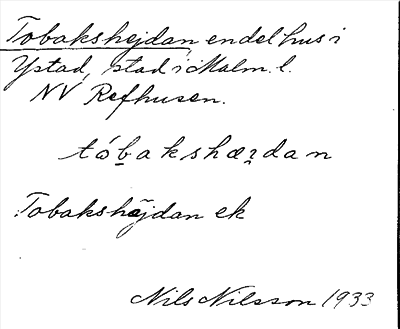 Tobakshejdan en del hus i
Ystad, stad i Malm. l.
NV Refhusen.
tóbakshæꝛdan
Tobakshöjdan ek
Nils Nilsson 1933